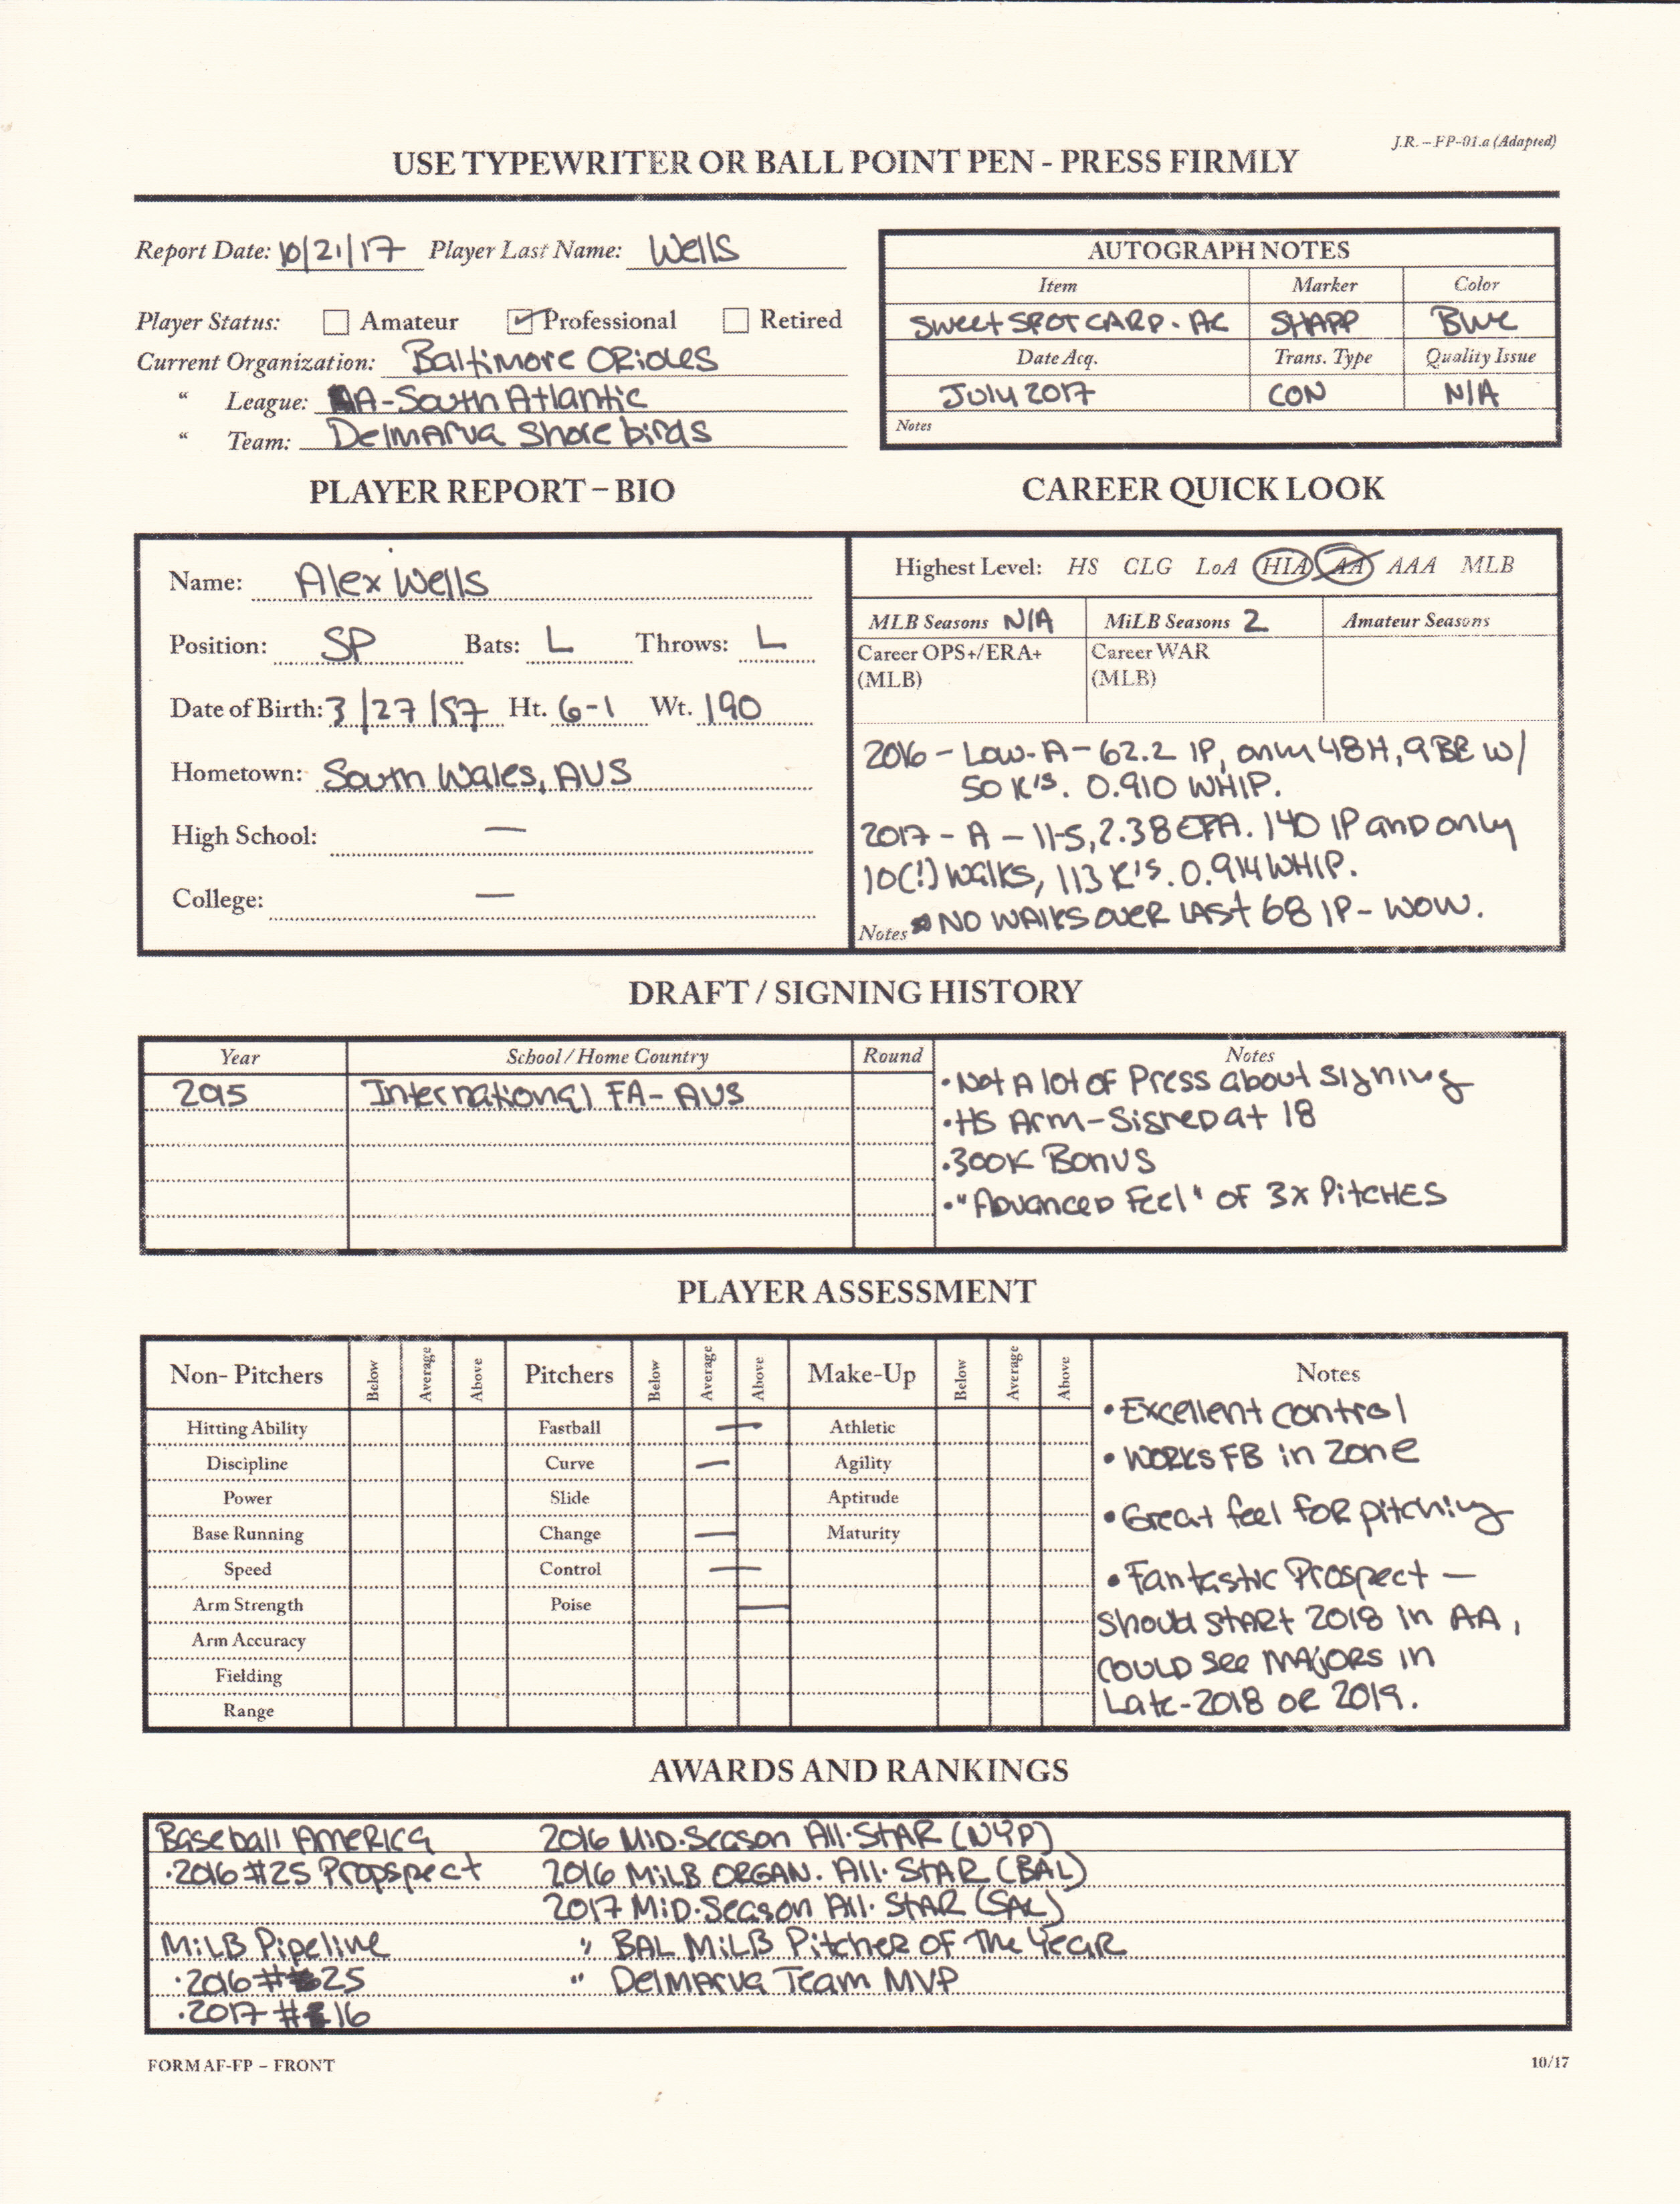 J.R. – FP-01.a (Adapted)
USE TYPEWRITER OR BALL POINT PEN - PRESS FIRMLY
Report Date: 10/21/17 Player Last Name: Wells
Player Status: Amateur Professional Retired
Current Organization: Baltimore Orioles
" League: A-South Atlantic
" Team: Delmarva Shorebirds
AUTOGRAPH NOTES
Item Marker Color
Sweet SPOT CARD - AC SHARP Blue
Date Acq. Trans. Type Quality Issue
July 2017 CON N/A
Notes
PLAYER REPORT – BIO
Name: Alex Wells
Position: SP Bats: L Throws: L
Date of Birth: 3/27/97 Ht. 6-1 Wt. 190
Hometown: South Wales, AUS
High School: —
College: —
CAREER QUICK LOOK
Highest Level: HS CLG LoA HIA AA AAA MLB
MLB Seasons N/A MiLB Seasons 2 Amateur Seasons
Career OPS+/ERA+ Career WAR
(MLB) (MLB)
2016 - Low-A - 62.2 IP, only 48H, 9BB w/
50 K's. 0.910 WHIP.
2017 - A - 11-5, 2.38 ERA. 140 IP and only
10(!) walks, 113 K's. 0.914 WHIP.
Notes NO WALKS OVER LAST 68 IP - WOW.
DRAFT / SIGNING HISTORY
Year School / Home Country Round Notes
2015 International FA - AUS
• Not A lot of Press about signing
• HS Arm - Signed at 18
• 300K Bonus
• "Advanced Feel" of 3x Pitches
PLAYER ASSESSMENT
Non- Pitchers Below Average Above Pitchers Below Average Above Make-Up Below Average Above Notes
Hitting Ability Fastball Athletic
Discipline Curve Agility
Power Slide Aptitude
Base Running Change Maturity
Speed Control
Arm Strength Poise
Arm Accuracy
Fielding
Range
• Excellent control
• WORKS FB in Zone
• Great feel for pitching
• Fantastic Prospect —
should start 2018 in AA,
could see MAJORS in
Late-2018 or 2019.
AWARDS AND RANKINGS
Baseball America 2016 Mid-Season All-Star (NYP)
• 2016 #25 Propspect 2016 MiLB ORGAN. All-Star (BAL)
2017 Mid-Season All-Star (SAL)
MiLB Pipeline " BAL MiLB Pitcher of The Year
• 2016 #25 " Delmarva Team MVP
• 2017 #16
FORM AF-FP – FRONT 10/17